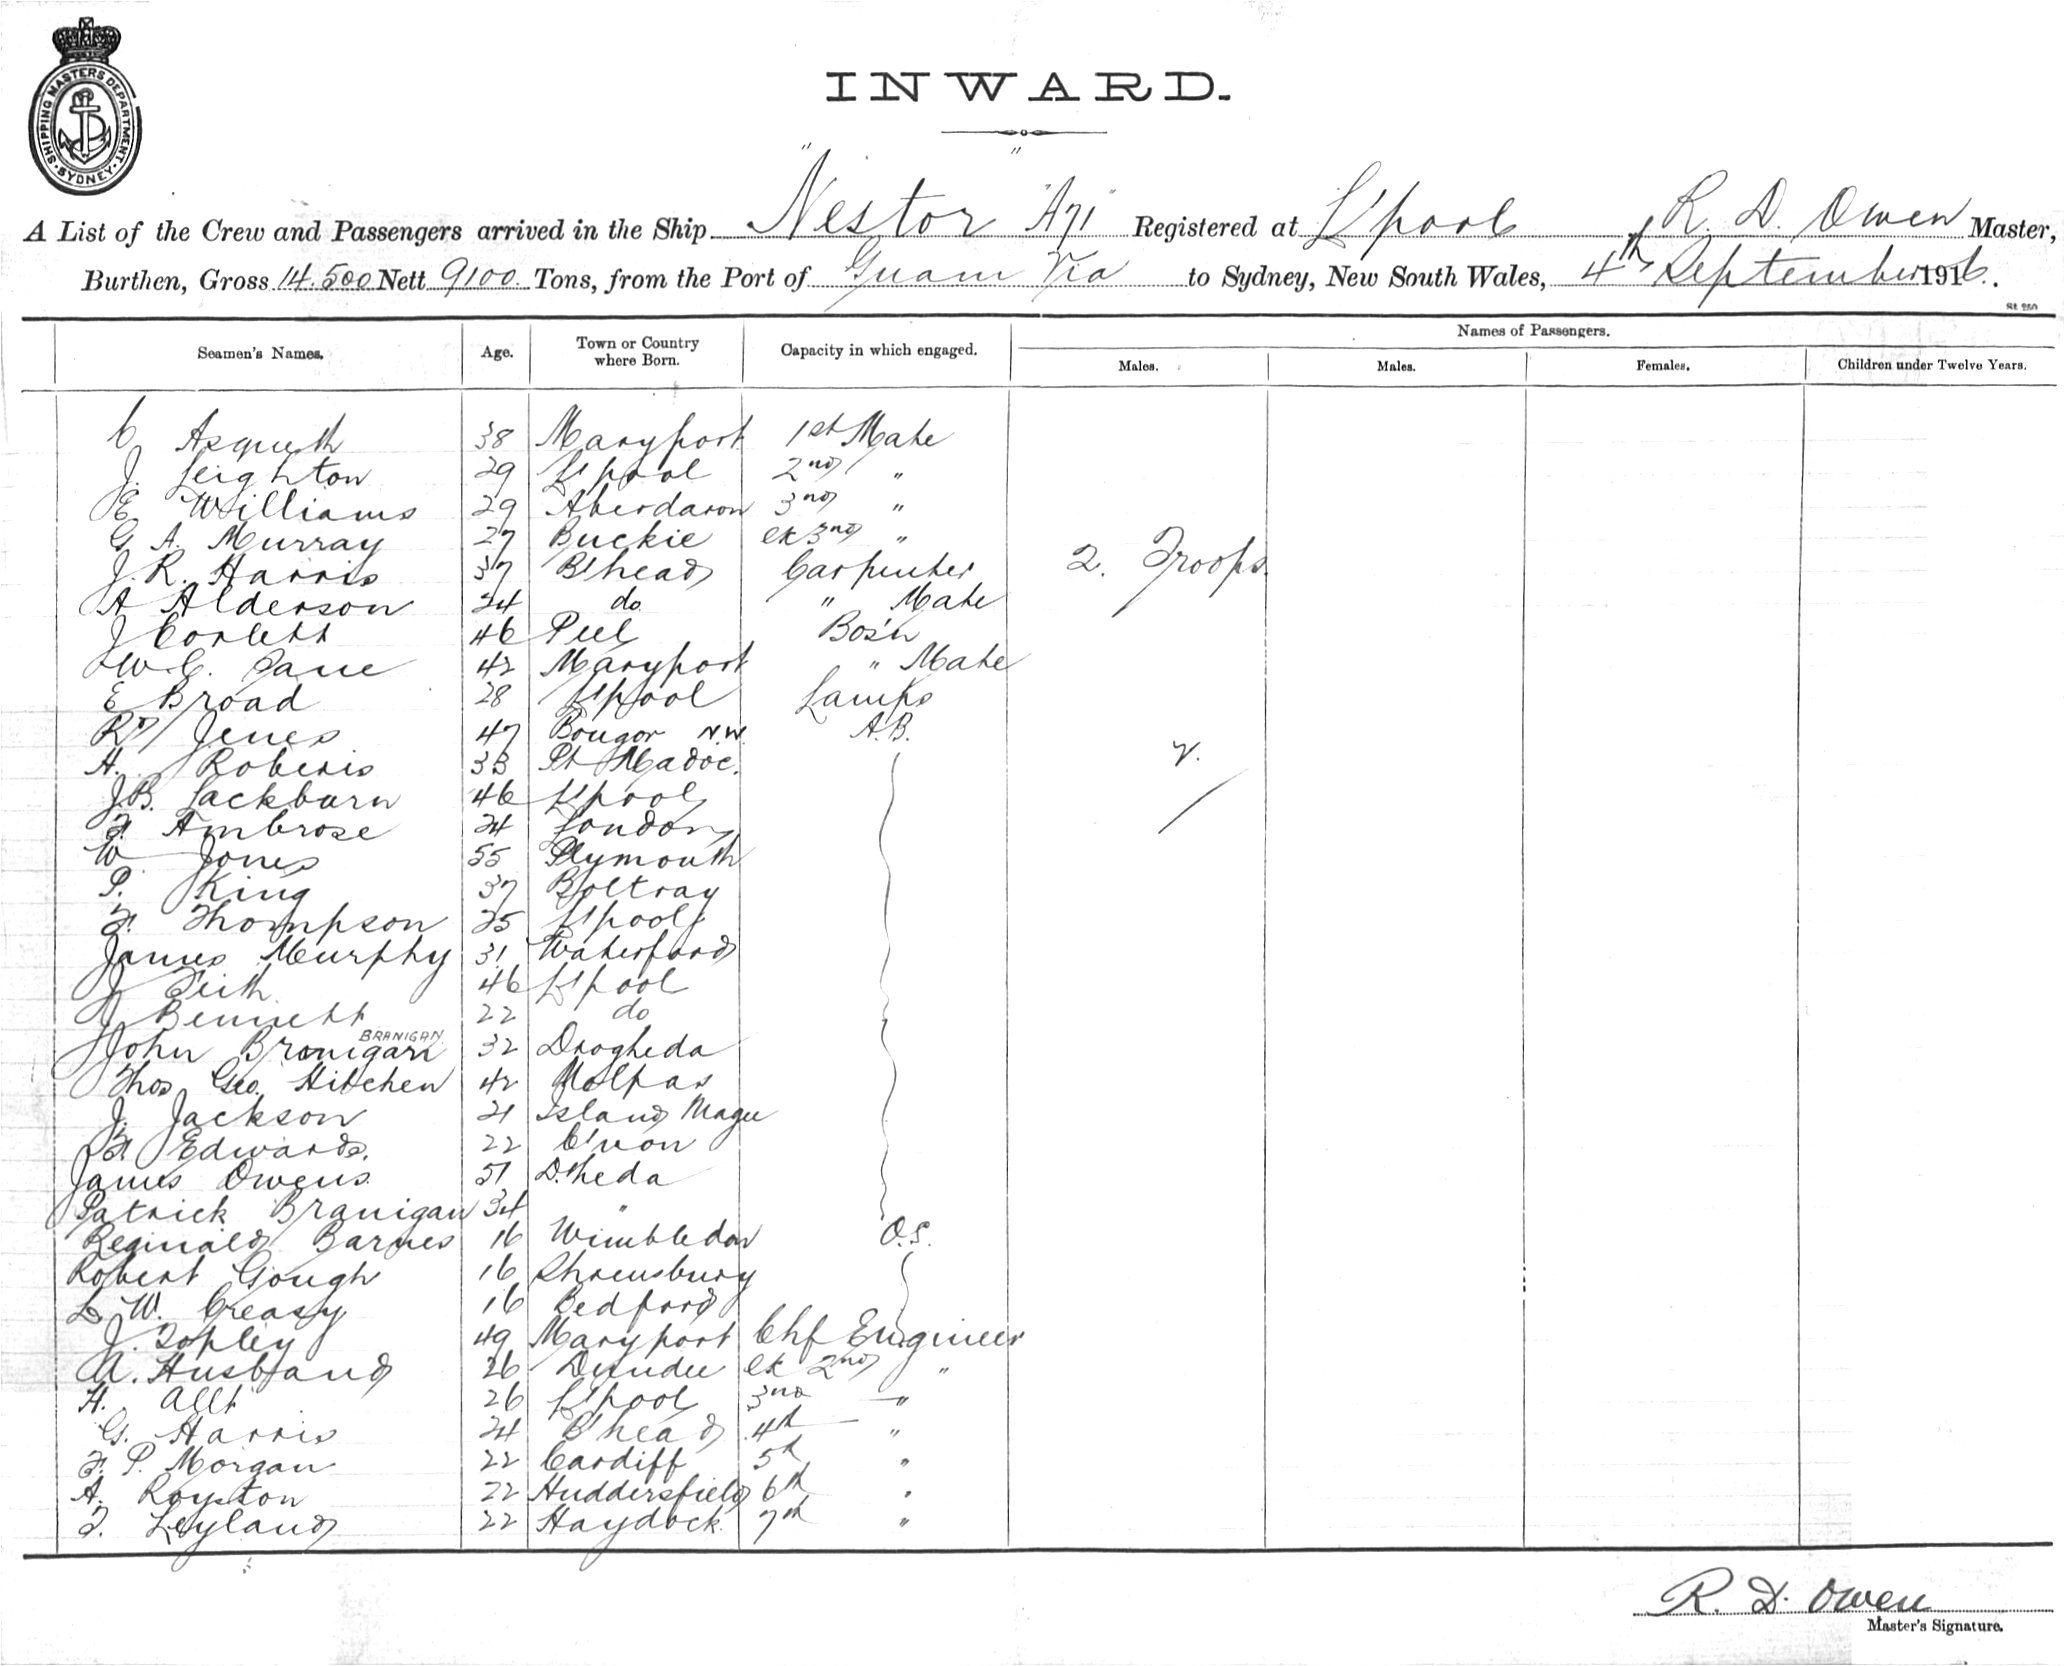 SHIPPING MASTERS DEPARTMENT · SYDNEY ·
INWARD.
A List of the Crew and Passengers arrived in the Ship "Nestor" "A71" Registered at L'pool, R. D. Owen Master,
Burthen, Gross 14.500 Nett 9100 Tons, from the Port of Via to Sydney, New South Wales, 4th September 1916.
St 250
Seamen's Names. Age. Town or Country where Born. Capacity in which engaged. Names of Passengers.
Males. Males. Females. Children under Twelve Years.
C Asquith 38 Maryport 1st Mate
J. Leighton 29 L'pool 2nd "
E Williams 29 Aberdaron 3rd "
G A. Murray 27 Buckie ex 3rd "
J. R. Harris 37 B'head Carpenter 2. Troops.
A Alderson 24 do " Mate
J Corlett 46 Peel Bos'n
W. C. Lane 42 Maryport " Mate
E Broad 28 L'pool Lamps
Rd Jones 47 Bangor N.W. A.B.
H. Roberts 33 Pt Madoc. 2.
J.B. Lackburn 46 L'pool
F. Ambrose 24 London
W Jones 55 Plymouth
P. King 37 Boltray
F. Thompson 25 L'pool
James Murphy 31 Waterford
J Leith 46 L'pool
J Bennett 22 do
BRANIGAN
John Branigan 32 Drogheda
Thos Geo. Hitchen 42 Malpas
J. Jackson 21 Island Magee
Edwards. 22 C'von
James Owens 51 D'heda
Patrick Branigan 34 "
Reginald Barnes 16 Wimbledon O.S.
Robert Gough 16 Shrewsbury
L W. Creasy 16 Bedford
J. Topley 49 Maryport Chf Engineer
A. Husband 26 Dundee ex 2nd "
H. Allt 26 L'pool 3rd "
G. Harris 24 B'head 4th "
F. P. Morgan 22 Cardiff 5th "
A. Royston 22 Huddersfield 6th "
T. Leyland 22 Haydock 7th "
R. D. Owen
Master's Signature.